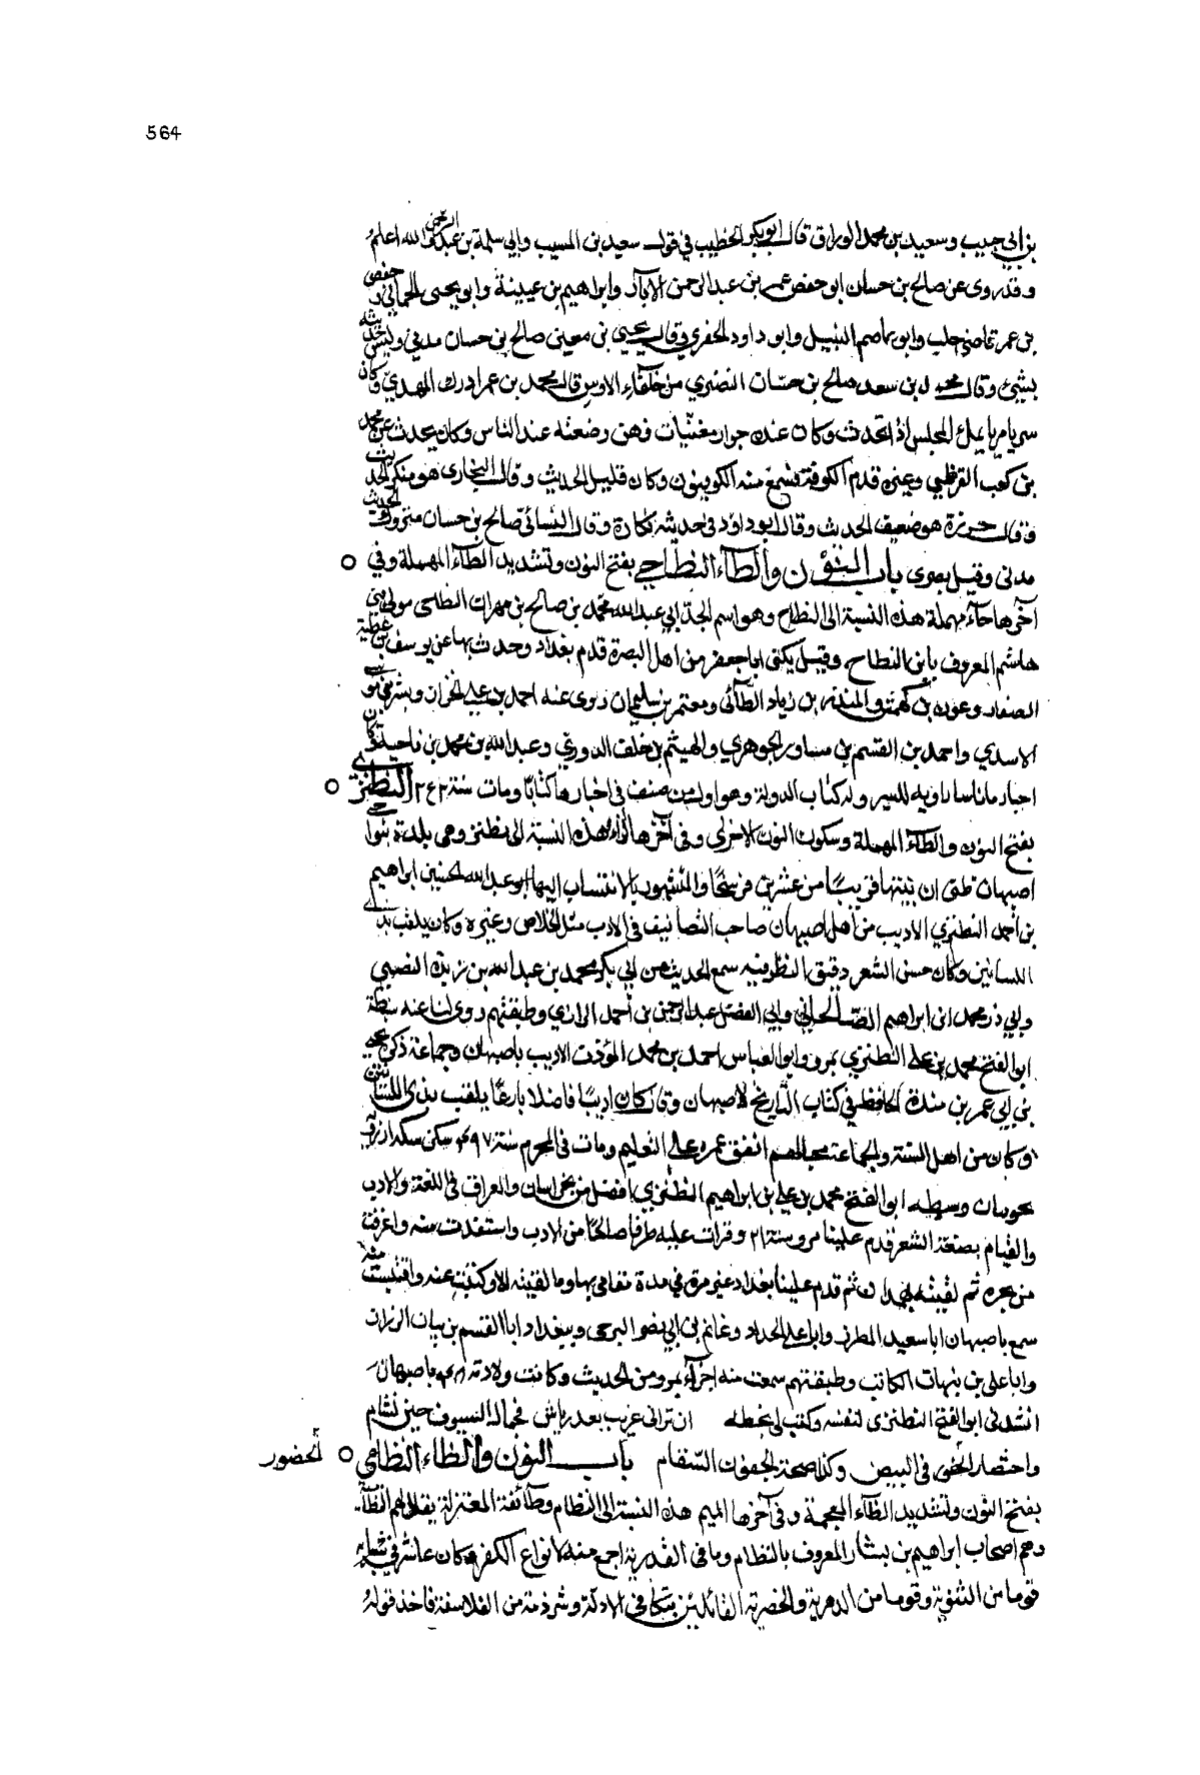 564
بن ابي حبيب وسعيد بن محمد الوراق قال ابو بكر الخطيب في قول سعيد بن المسيب وابي سلمة بن عبد الرحمن الله اعلم
وقد روى عن صالح بن حسان ابو حفص عمر بن عبد الرحمن الابار وابراهيم بن عيينة وابو يحيى الحماني وحفص
بن عمر قاضي حلب وابو عاصم النبيل وابو داود الحفري وقال يحيى بن معين صالح بن حسان مدني وليس حديثه
بشيء وقال محمد بن سعد صالح بن حسان النضري من حلفاء الاوس قال محمد بن عمر ادرك المهدي وكان
سريا مريا يملا المجلس اذا تحدث وكان عنده جوار مغنيات وهن وضعنه عند الناس وكان يحدث عن محمد
بن كعب القرظي وغيره قدم الكوفة فسمع منه الكوفيون وكان قليل الحديث وقال البخاري هو منكر الحديث
وقال جزرة هو ضعيف الحديث وقال ابو داود في حديثه نكارة وقال النسائي صالح بن حسان متروك الحديث
مدني وقيل بصرى باب النون والطاء النطاحي بفتح النون وتشديد الطاء المهملة وفي
آخرها حاء مهملة هذه النسبة الى النطاح وهو اسم لجد ابي عبد الله محمد بن صالح بن مهران النطاحي مولى بني
هاشم المعروف بابن النطاح وقيل يكنى ابا جعفر من اهل البصرة قدم بغداد وحدث بها عن يوسف بن عطية
الصفار وعون بن كهمس والمنذر بن زياد الطائي ومعتمر بن سليمان روى عنه احمد بن علي الخزاز وبشر بن موسى
الاسدي واحمد بن القسم بن مساور الجوهري والهيثم بن خلف الدوري وعبد الله بن محمد بن ناجية وكان
اخباريا ناسبا راوية للسير وله كتاب الدولة وهو اول من صنف في اخبارها كتابا ومات سنة ٢٤٢ النطنزى
بفتح النون والطاء المهملة وسكون النون الاخرى وفي آخرها الزاء هذه النسبة الى نطنز وهى بليدة بنواحي
اصبهان ظني ان بينها قريبا من عشرين فرسخا والمشهور بالانتساب اليها ابو عبد الله الحسين بن ابراهيم
بن أحمد النطنزي الاديب من أهل اصبهان صاحب التصانيف في الادب مثل الخلاص وغيره وكان يلقب بذي
اللسانين وكان حسن الشعر دقيق النظر فيه سمع الحديث من ابي بكر محمد بن عبد الله بن زيذة الضبي
وابي ذر محمد بن ابراهيم الصالحاني وابي الفضل عبد الرحمن بن أحمد الرازي وطبقتهم روى لنا عنه سبطه
ابو الفتح محمد بن علي النطنزي بمرو وابو العباس احمد بن محمد المؤذن الاديب باصبهان وجماعة ذكره يحيى
بن ابي عمر بن مندة الحافظ في كتاب التاريخ لاصبهان وقال كان اديبا فاضلا بارعا يلقب بذى اللسانين
وكان من اهل السنة والجماعة محبا لهم انفق عمره على التعليم ومات في المحرم سنة ٤٩٧ سكن سكة
وسبطه ابو الفتح محمد بن علي بن ابراهيم النطنزي افضل من بخراسان والعراق في اللغة والادب
والقيام بصنعة الشعر قدم علينا مرو سنة ٢١ وقرات عليه طرفا صالحا من الادب واستفدت منه واغترفت
من بحره ثم لقيته بهمدان ثم قدم علينا بغداد غير مرة في مدة مقامي بها وما لقيته الا وكتبت عنه واقتبست منه
سمع باصبهان ابا سعيد المطرز وابا علي الحداد وغانم بن ابي نصر البرجى وببغداد ابا القسم بن بيان الرزاز
وابا علي بن نبهان الكاتب وطبقتهم سمعت منه اجزاء بمرو من الحديث وكانت ولادته باصبهان
انشدني ابو الفتح النطنزى لنفسه وكتب لي بخطه
باب النون والظاء النظامي
بفتح النون وتشديد الظاء المعجمة وفي آخرها الميم هذه النسبة الى النظام وطائفة المعتزلة يقال لهم النظامية
وهم اصحاب ابراهيم بن بشار المعروف بالنظام وما في القدرية اجمع منه لانواع الكفر وكان عاشر في شبابه
قوما من الثنوية وقوما من الدهرية القائلين بتكافي الادلة وشرذمة من الفلاسفة فاخذ قوله